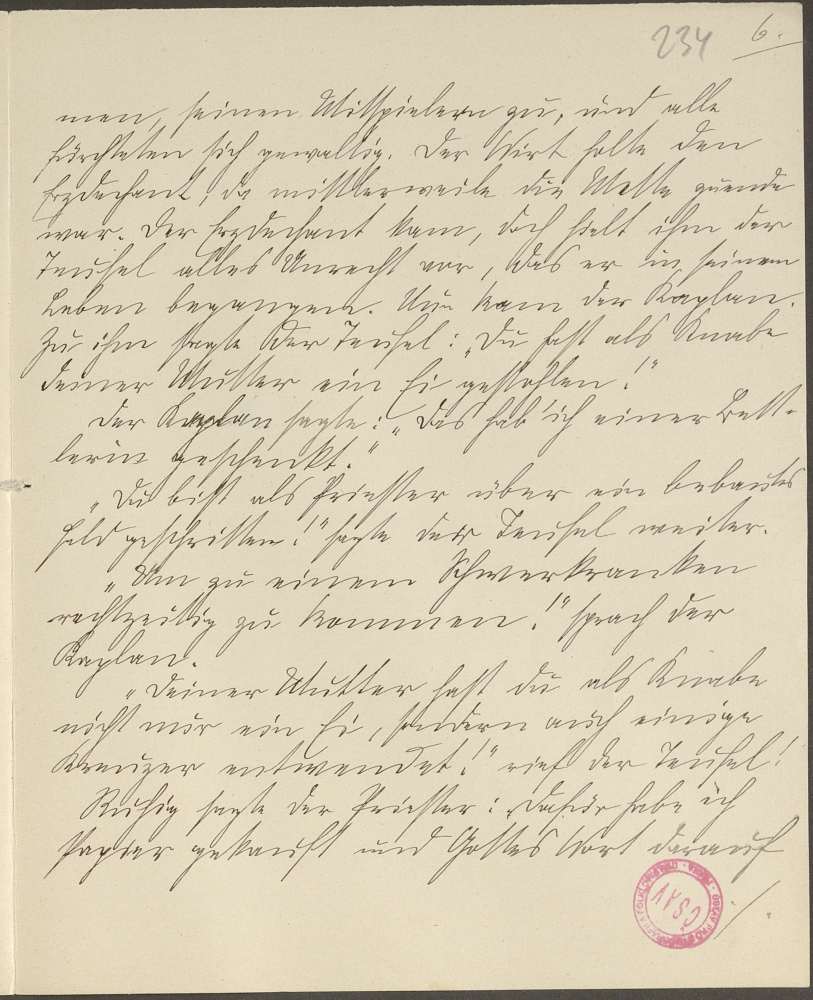 234 6.
men, seinen Mitspielern zu, und alle
fürchteten sich gewaltig. Der Wirt holte den
Erzdechant, da mittlerweile die Mette zuende
war. Der Erzdechant kam, doch hielt ihm der
Teufel alles Unrecht vor, das er in seinem
Leben begangen. Nun kam der Kaplan.
Zu ihm sagte der Teufel: „Du hast als Knabe
deiner Mutter ein Ei gestohlen!"
Der Kaplan sagte: „Das hab' ich einer Bett-
lerin geschenkt."
„Du bist als Priester über ein bebautes
Feld geschritten!" sagte der Teufel weiter.
„Um zu einem Schwerkranken
rechtzeitig zu kommen!" sprach der
Kaplan.
„Deiner Mutter hast du als Knabe
nicht nur ein Ei, sondern auch einige
Kreuzer entwendet!" rief der Teufel!
Ruhig sagte der Priester: „Dafür habe ich
Papier gekauft und Gottes Wort darauf
./.